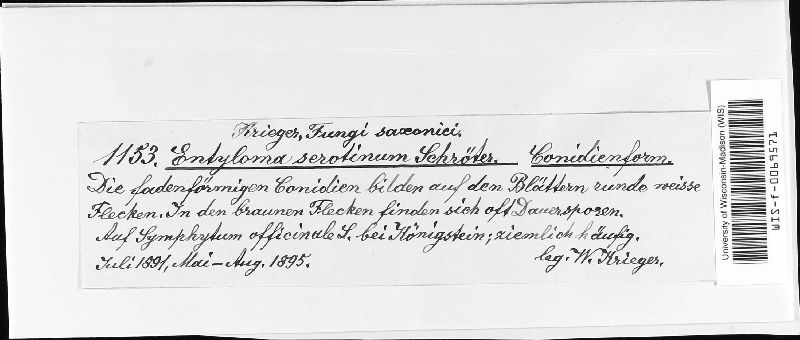 Krieger, Fungi saxonici.
1153. Entyloma serotinum Schröter. Conidienform.
Die fadenförmigen Conidien bilden auf den Blättern runde weisse
Flecken. In den braunen Flecken finden sich oft Dauersporen.
Auf Symphytum officinale L. bei Königstein; ziemlich häufig.
Juli 1891, Mai – Aug. 1895. leg. W. Krieger.
University of Wisconsin-Madison (WIS)
WIS-f-0069571